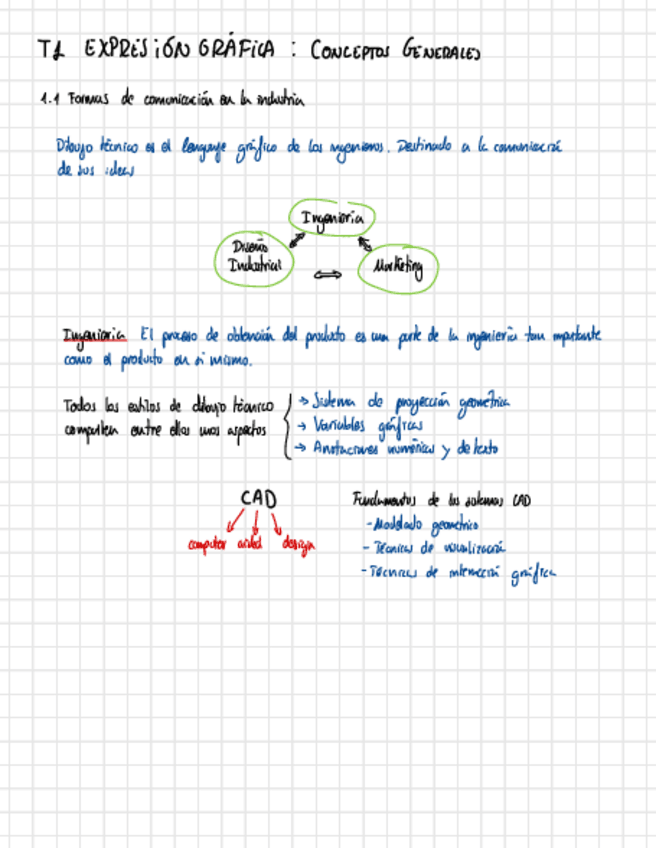 T1 EXPRESIÓN GRÁFICA : CONCEPTOS GENERALES
1.1 Formas de comunicación en la industria
Dibujo técnico es el lenguaje gráfico de los ingenieros. Destinado a la comunicación
de sus ideas
Ingeniería
Diseño
Industrial
Marketing
Ingeniería El proceso de obtención del producto es una parte de la ingeniería tan importante
como el producto en si mismo.
Todos los estilos de dibujo técnico
comparten entre ellos unos aspectos
→ Sistema de proyección geométrica
→ Variables gráficas
→ Anotaciones numéricas y de texto
CAD
computer aided design
Fundamentos de los sistemas CAD
- Modelado geométrico
- Técnicas de visualización
- Técnicas de interacción gráfica